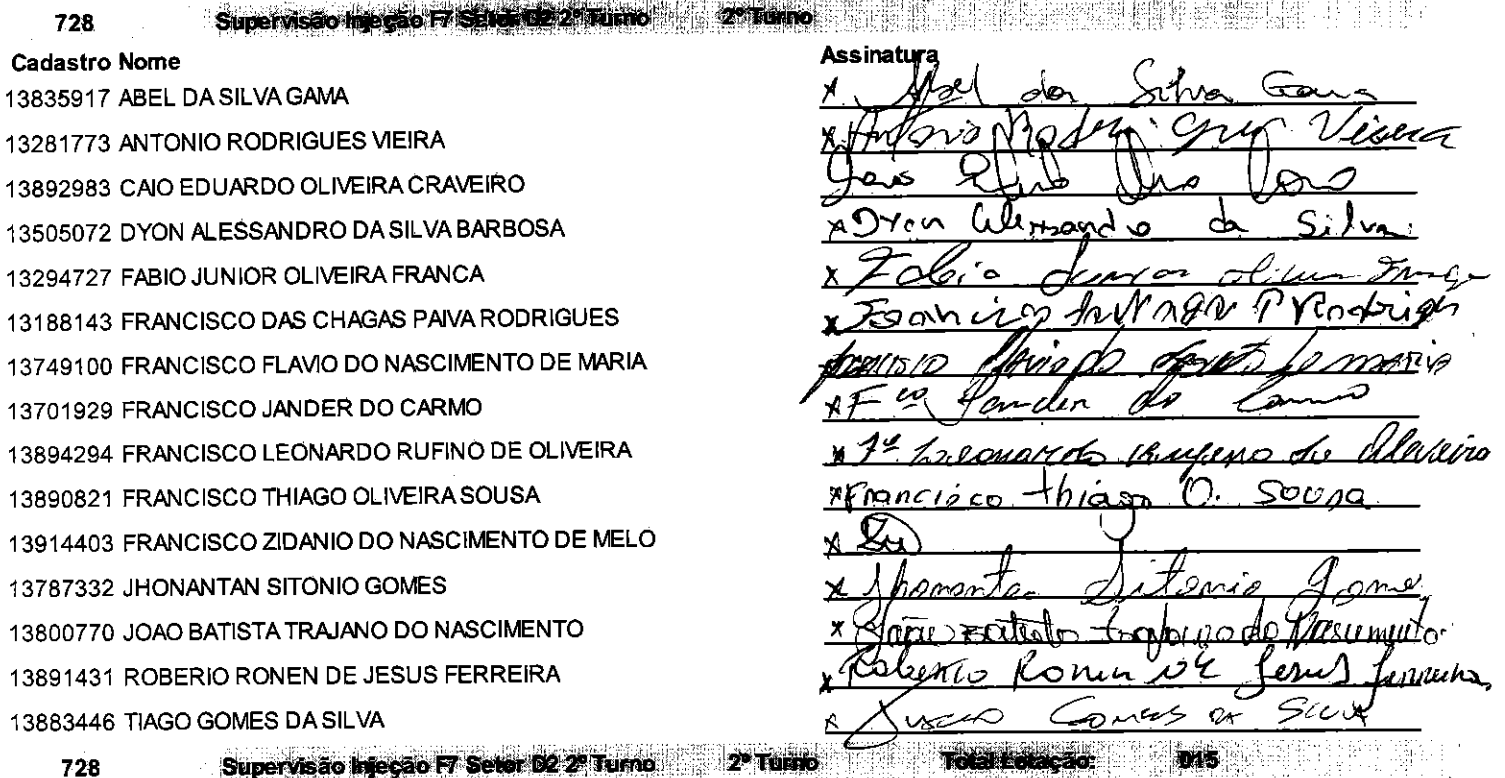 728 Supervisão Injeção F7 Setor D2 2º Turno 2º Turno
Cadastro Nome Assinatura
13835917 ABEL DA SILVA GAMA x Abel da Silva Gama
13281773 ANTONIO RODRIGUES VIEIRA x Antonio Vieira
13892983 CAIO EDUARDO OLIVEIRA CRAVEIRO
13505072 DYON ALESSANDRO DA SILVA BARBOSA x Dyon Alessandro da Silva
13294727 FABIO JUNIOR OLIVEIRA FRANCA x Fabio Junior
13188143 FRANCISCO DAS CHAGAS PAIVA RODRIGUES x Francisco
13749100 FRANCISCO FLAVIO DO NASCIMENTO DE MARIA
13701929 FRANCISCO JANDER DO CARMO x Fco Jander do Carmo
13894294 FRANCISCO LEONARDO RUFINO DE OLIVEIRA x Leonardo
13890821 FRANCISCO THIAGO OLIVEIRA SOUSA x Francisco thiago O. Sousa
13914403 FRANCISCO ZIDANIO DO NASCIMENTO DE MELO x
13787332 JHONANTAN SITONIO GOMES x Jhonantan Sitonio Gome
13800770 JOAO BATISTA TRAJANO DO NASCIMENTO x do Nascimento
13891431 ROBERIO RONEN DE JESUS FERREIRA x Roberio Ronen de Jesus Ferreira
13883446 TIAGO GOMES DA SILVA x Gomes da Silva
728 Supervisão Injeção F7 Setor D2 2º Turno 2º Turno Total Lotação: 015